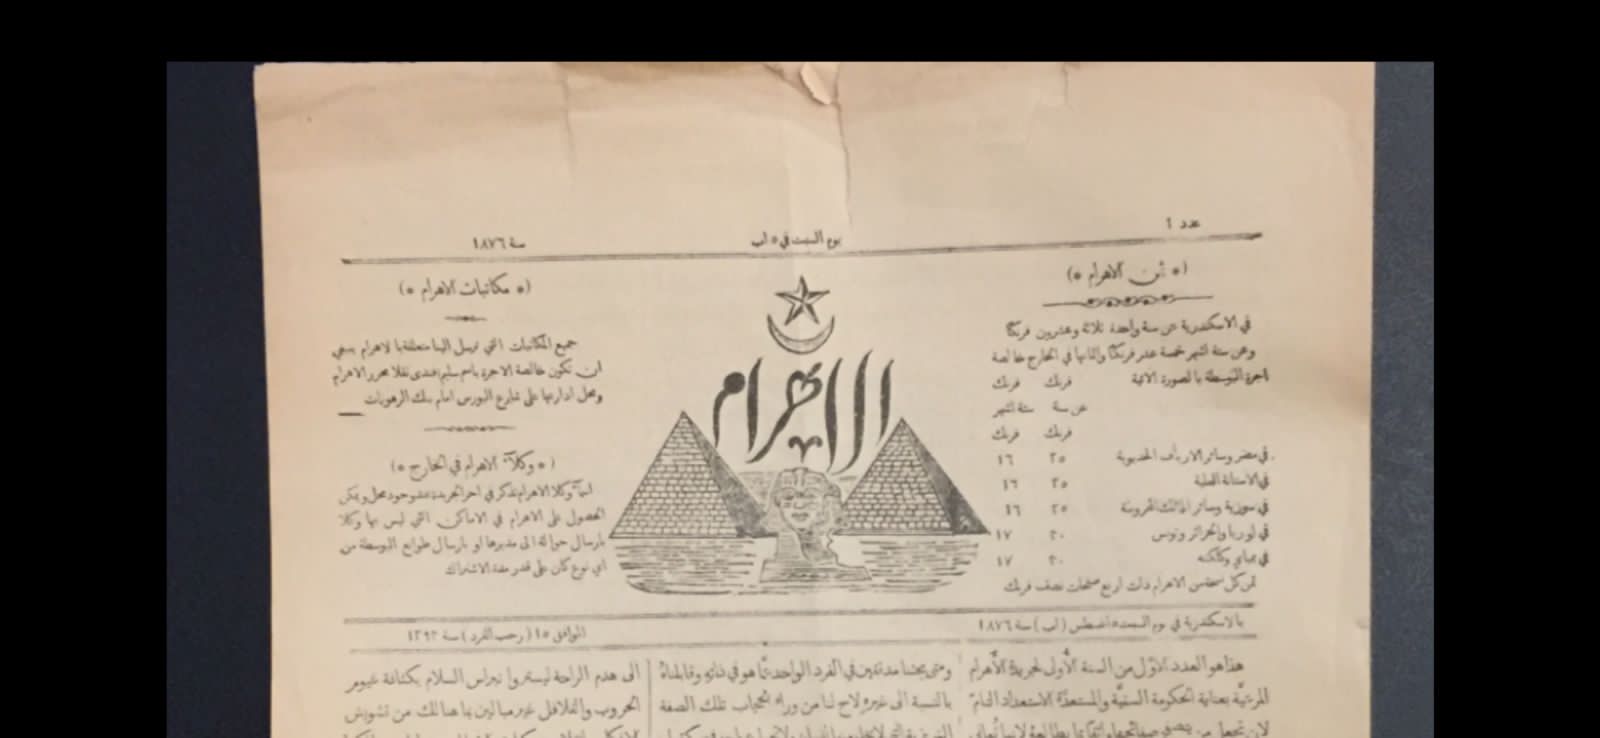 عدد ١
يوم السبت في ٥ اب
سنة ١٨٧٦
(* ثمن الاهرام *)
في الاسكندرية عن سنة واحدة ثلاثة وعشرون فرنكا
وعن ستة اشهر خمسة عشر فرنكا واثمانها في الخارج خالصة
اجرة البوسطة بالصورة الاتية
فرنك فرنك
عن سنة ستة اشهر
فرنك فرنك
في مصر وسائر الارياف الخديوية ٢٥ ١٦
في الاستانة العلية ٢٥ ١٦
في سورية وسائر الممالك المحروسة ٢٥ ١٦
في اوربا والجزائر وتونس ٣٠ ١٧
في بمباي وكلكته ٣٠ ١٧
ثمن كل نسخة من الاهرام ذات اربع صفحات نصف فرنك
الاهرام
(* مكاتبات الاهرام *)
جميع المكاتبات التي ترسل الينا متعلقة بالاهرام ينبغي
ان تكون خالصة الاجرة باسم سليم افندي تقلا محرر الاهرام
ومحل ادارتها على شارع البورس امام بنك الرهونات
(* وكلآء الاهرام في الخارج *)
اسمآء وكلا الاهرام تذكر في اخر الجريدة عند وجود محل ويمكن
الحصول على الاهرام في الاماكن التي ليس بها وكلا
بارسال حوالة الى مديرها او بارسال طوابع البوسطة من
اي نوع كان على قدر مدة الاشتراك
بالاسكندرية في يوم السبت ٥ اغسطس (اب) سنة ١٨٧٦
الموافق ١٥ (رجب الفرد) سنة ١٢٩٣
هذا هو العدد الاوَّل من السنة الأُولى لجريدة الأَهرام
المرعيَّة بعناية الحكومة السنيَّة والمستعدَّة الاستعداد التامّ
ومتى بحثنا مدققين في الفرد الواحد ممَّا هو في ذاتهِ وقابلناهُ
بالنسبة الى غيرهِ لاح لنا من وراء الحجاب تلك الصفة
الى هدم الراحة ليستروا نبراس السلام بكثافة غيوم
الحروب والقلاقل غير مبالين بما هنالك من تشويش